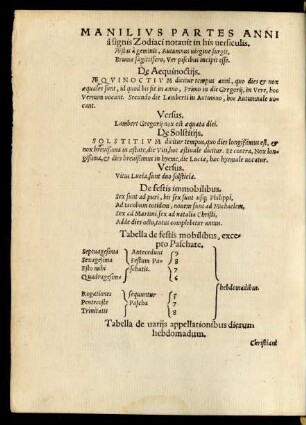 MANILIVS PARTES ANNI
á signis Zodiaci notauit in his versiculis.
Aestas à geminis, Autumnus virgine surgit,
Bruma sagittifero, Ver piscibus incipit esse.
De Aequinoctijs.
ÆQVINOCTIVM dicitur tempus anni, quo dies & nox
æquales sunt, id quod bis fit in anno, Primo in die Gregorij, in Vere, hoc
Vernum vocant. Secundo die Lamberti in Autumno, hoc Autumnale vo-
cant.
Versus.
Lambert Gregorij nox est aquata diei.
De Solstitijs.
SOLSTITIVM dicitur tempus, quo dies longissimus est, &
nox breuissima in æstate, die Viti, hoc æstiuale dicitur. Et contra, Nox lon-
gissima, & dies breuissimus in hyeme, die Lucia, hoc hyemale vocatur.
Versus.
Vitus Lucia, sunt duo solsticia.
De festis immobilibus.
Sex sunt ad pueri, bis sex sunt vsq; Philippi,
Ad Iacobum totidem, nouem sunt ad Michaelem,
Sex ad Martini, sex ad natalia Christi,
Adde dies octo, totus complebitur annus.
Tabella de festis mobilibus, exce-
pto Paschate.
Septuagesima Antecedunt 9
Sexagesima Festum Pa- 8
Esto mihi schatis. 7
Quadragesima 6
hebdomadibus.
Rogationes sequuntur 5
Pentecoste Pascha 7
Trinitatis 8
Tabella de uarijs appellationibus dierum
hebdomadum.
Christiani